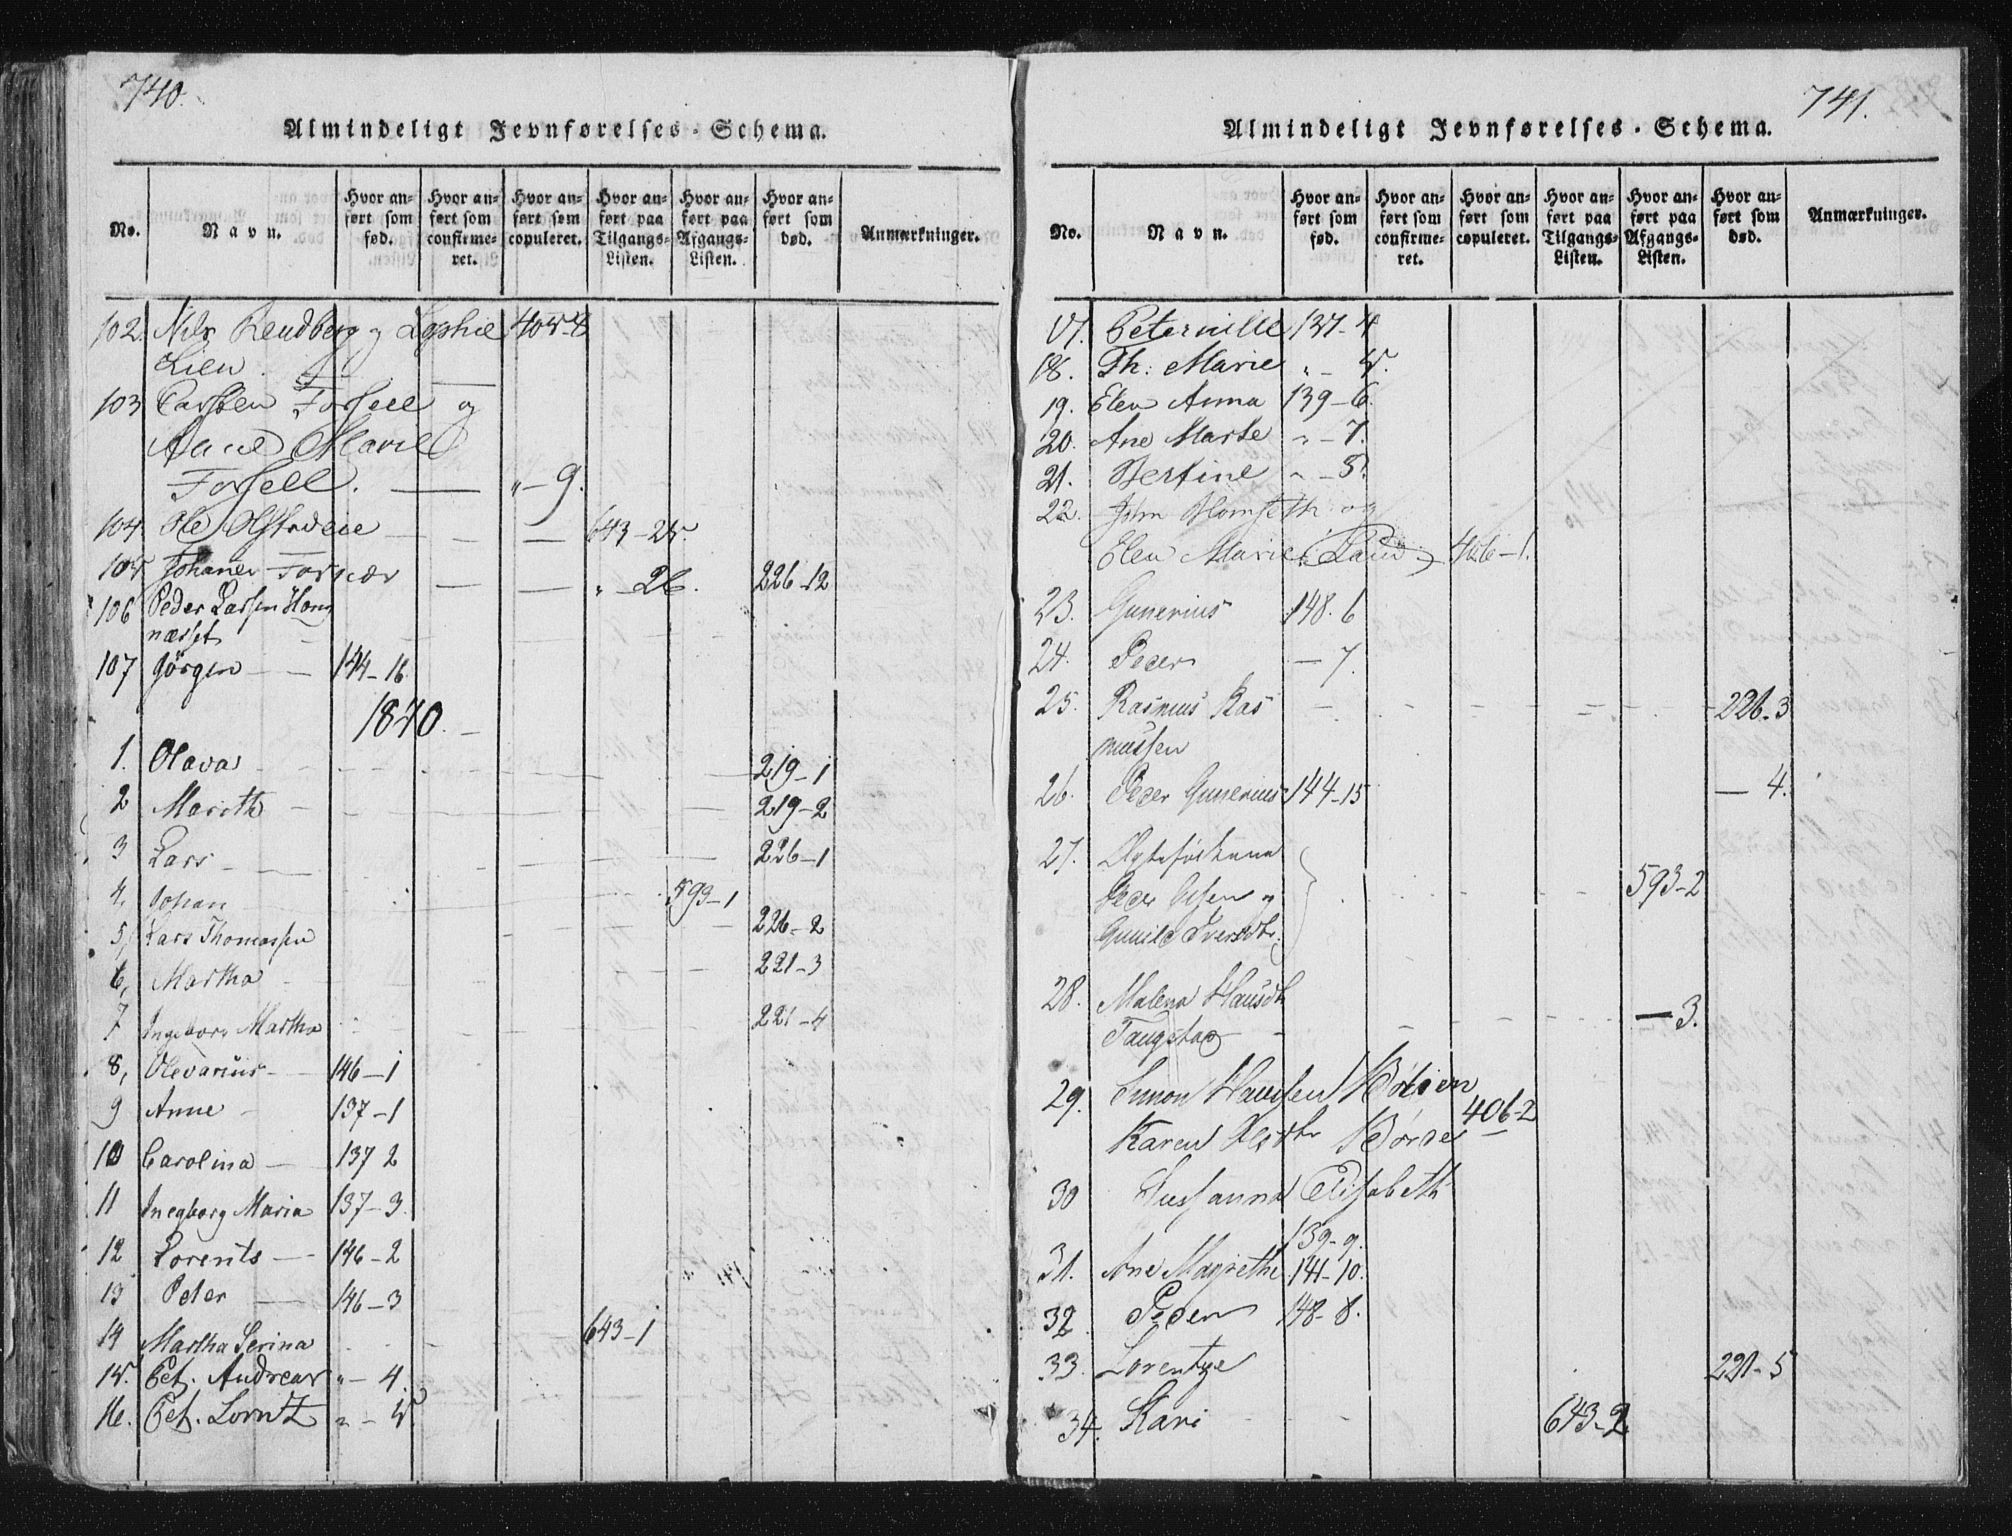 740.
Almindeligt Jevnførelses-Schema.
No.
Navn.
Hvor anført som fød.
Hvor anført som confirmeret.
Hvor anført som copuleret.
Hvor anført paa Tilgangs-Listen.
Hvor anført paa Afgangs-Listen.
Hvor anført som død.
Anmærkninger.
102. Nils og Sophie 405-8
Lien.
103 Carsten Forsell og
Anne Marie
Forsell. — „-9.
104. Ole 643-25.
105 Johanes — „-26. 226-12
106 Peder Larsen
næsset
107 Jörgen — 144-16.
1840.
1. Olava 219-1
2 Mareth 219-2
3 Lars 226-1
4, Johan 593-1
5, Lars Thomassen 226-2
6, Martha 221-3
7 Ingeborg Martha 221-4
8, Olevarius- 146-1
9 Anne 137-1
10 Carolina 137 2
11 Ingeborg Maria 137-3
12 Lorents 146-2
13 Peter 146-3
14 Martha Serina 643-1
15. Pet. Andreas „-4.
16. Pet. Lorntz „-5
741.
Almindeligt Jevnførelses-Schema.
No.
Navn.
Hvor anført som fød.
Hvor anført som confirmeret.
Hvor anført som copuleret.
Hvor anført paa Tilgangs-Listen.
Hvor anført paa Afgangs-Listen.
Hvor anført som død.
Anmærkninger.
17. Peternille 137-4
18. Th: Marie „-5.
19. Elen Anna 139-6.
20. Ane Marte „-7.
21. Bertine „-8.
22. John og
Elen Marie 406-1.
23. Gunerius 148.6
24. Peder — 7.
25. Rasmus Ras 226-3
mussen
26. Peder Gunerius 144-15 — 4.
27. Ægtefolkene
Peder Olsen og 593-2
Gunild Iversdtr.
28. Malena Hansdt
Taugstad — 3.
29. Simon Hansen
Karen Olsdtr 406-2
30 Susanna Elisabeth
139-9.
31. Ane Magrethe 141-10.
32. Peder 148-8.
33. Lorentze 221-5
34. Kari 643-2